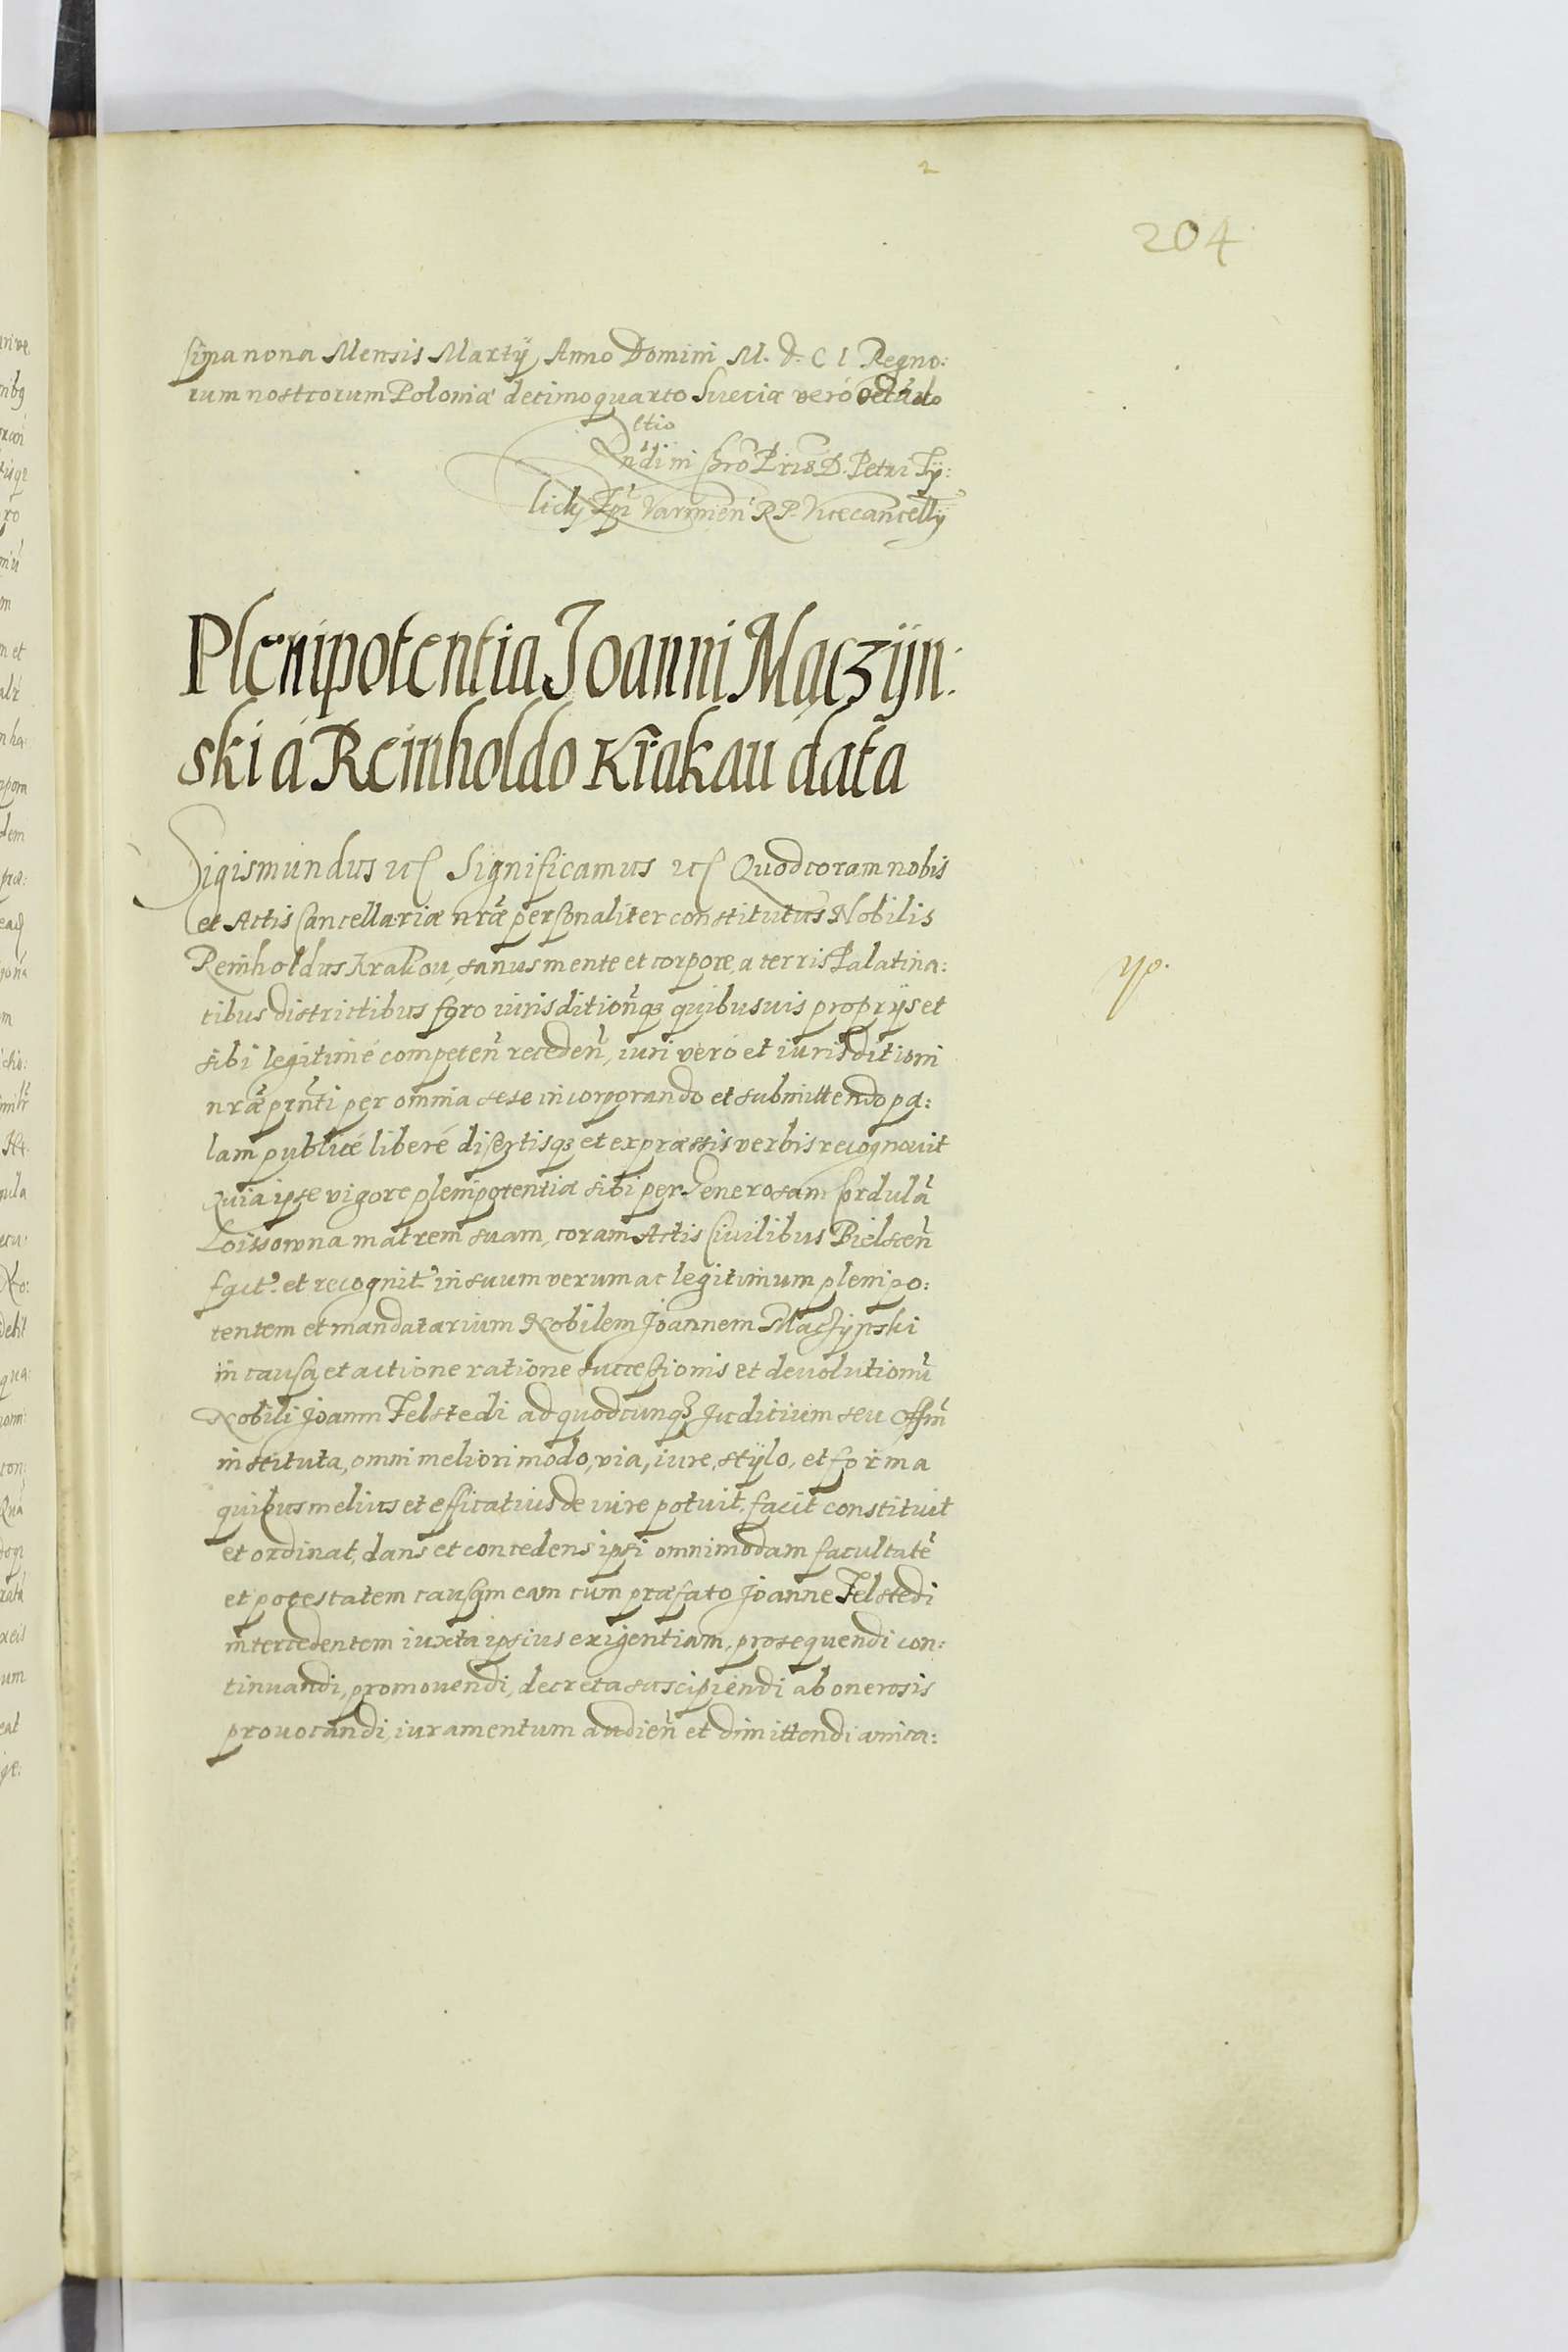 2
204
sima nona Mensis Martij Anno Domini M. d. C I Regno:
rum nostrorum Poloniæ decimoquarto Sueciæ veró octauo
Rndi in Chro Pris D. Petri Ty:
licky Epi Varmien R P. Vicecancellij
Plenipotentia Joanni Mączÿn:
ski á Reinholdo Krakau data
Sigismundus etc Significamus etc Quod coram nobis
et Actis Cancellariæ nræ personaliter constitutus Nobilis
Reinholdus Krakou, sanus mente et corpore, a terris Palatina:
tibus districtibus foro iurisditionq3 quibusuis proprijs et
sibi legitimé competen receden, iuri veró et iurisditioni
nræ prnti per omnia sese incorporando et submittendo pa:
lam publicé liberé disertisq3 et expræssis verbis recognouit
Quia ipse vigore plenipotentiæ sibi per Generosam Cordulã
Loissowna matrem suam, coram Actis Ciuilibus Bielscen
fact. et recognit. in suum verum ac legitimum plenipo:
tentem et mandatarium Nobilem Joannem Mączÿnski
in causa et actione ratione successionis et deuolutionũ
Nobili Joanni Felstedi ad quodcunq3 Juditium seu Offm
instituta, omni meliori modo, via, iure, stÿlo, et forma
quibus melius et efficatius de iure potuit, facit constituit
et ordinat, dans et concedens ipsi omnimodam facultatẽ
et potestatem causam eam cum præfato Joanne Felstedi
intercedentem iuxta ipsius exigentiam, prosequendi con:
tinuandi, promouendi, decreta suscipiendi ab onerosis
prouocandi, iuramentum audien et dimittendi amica: